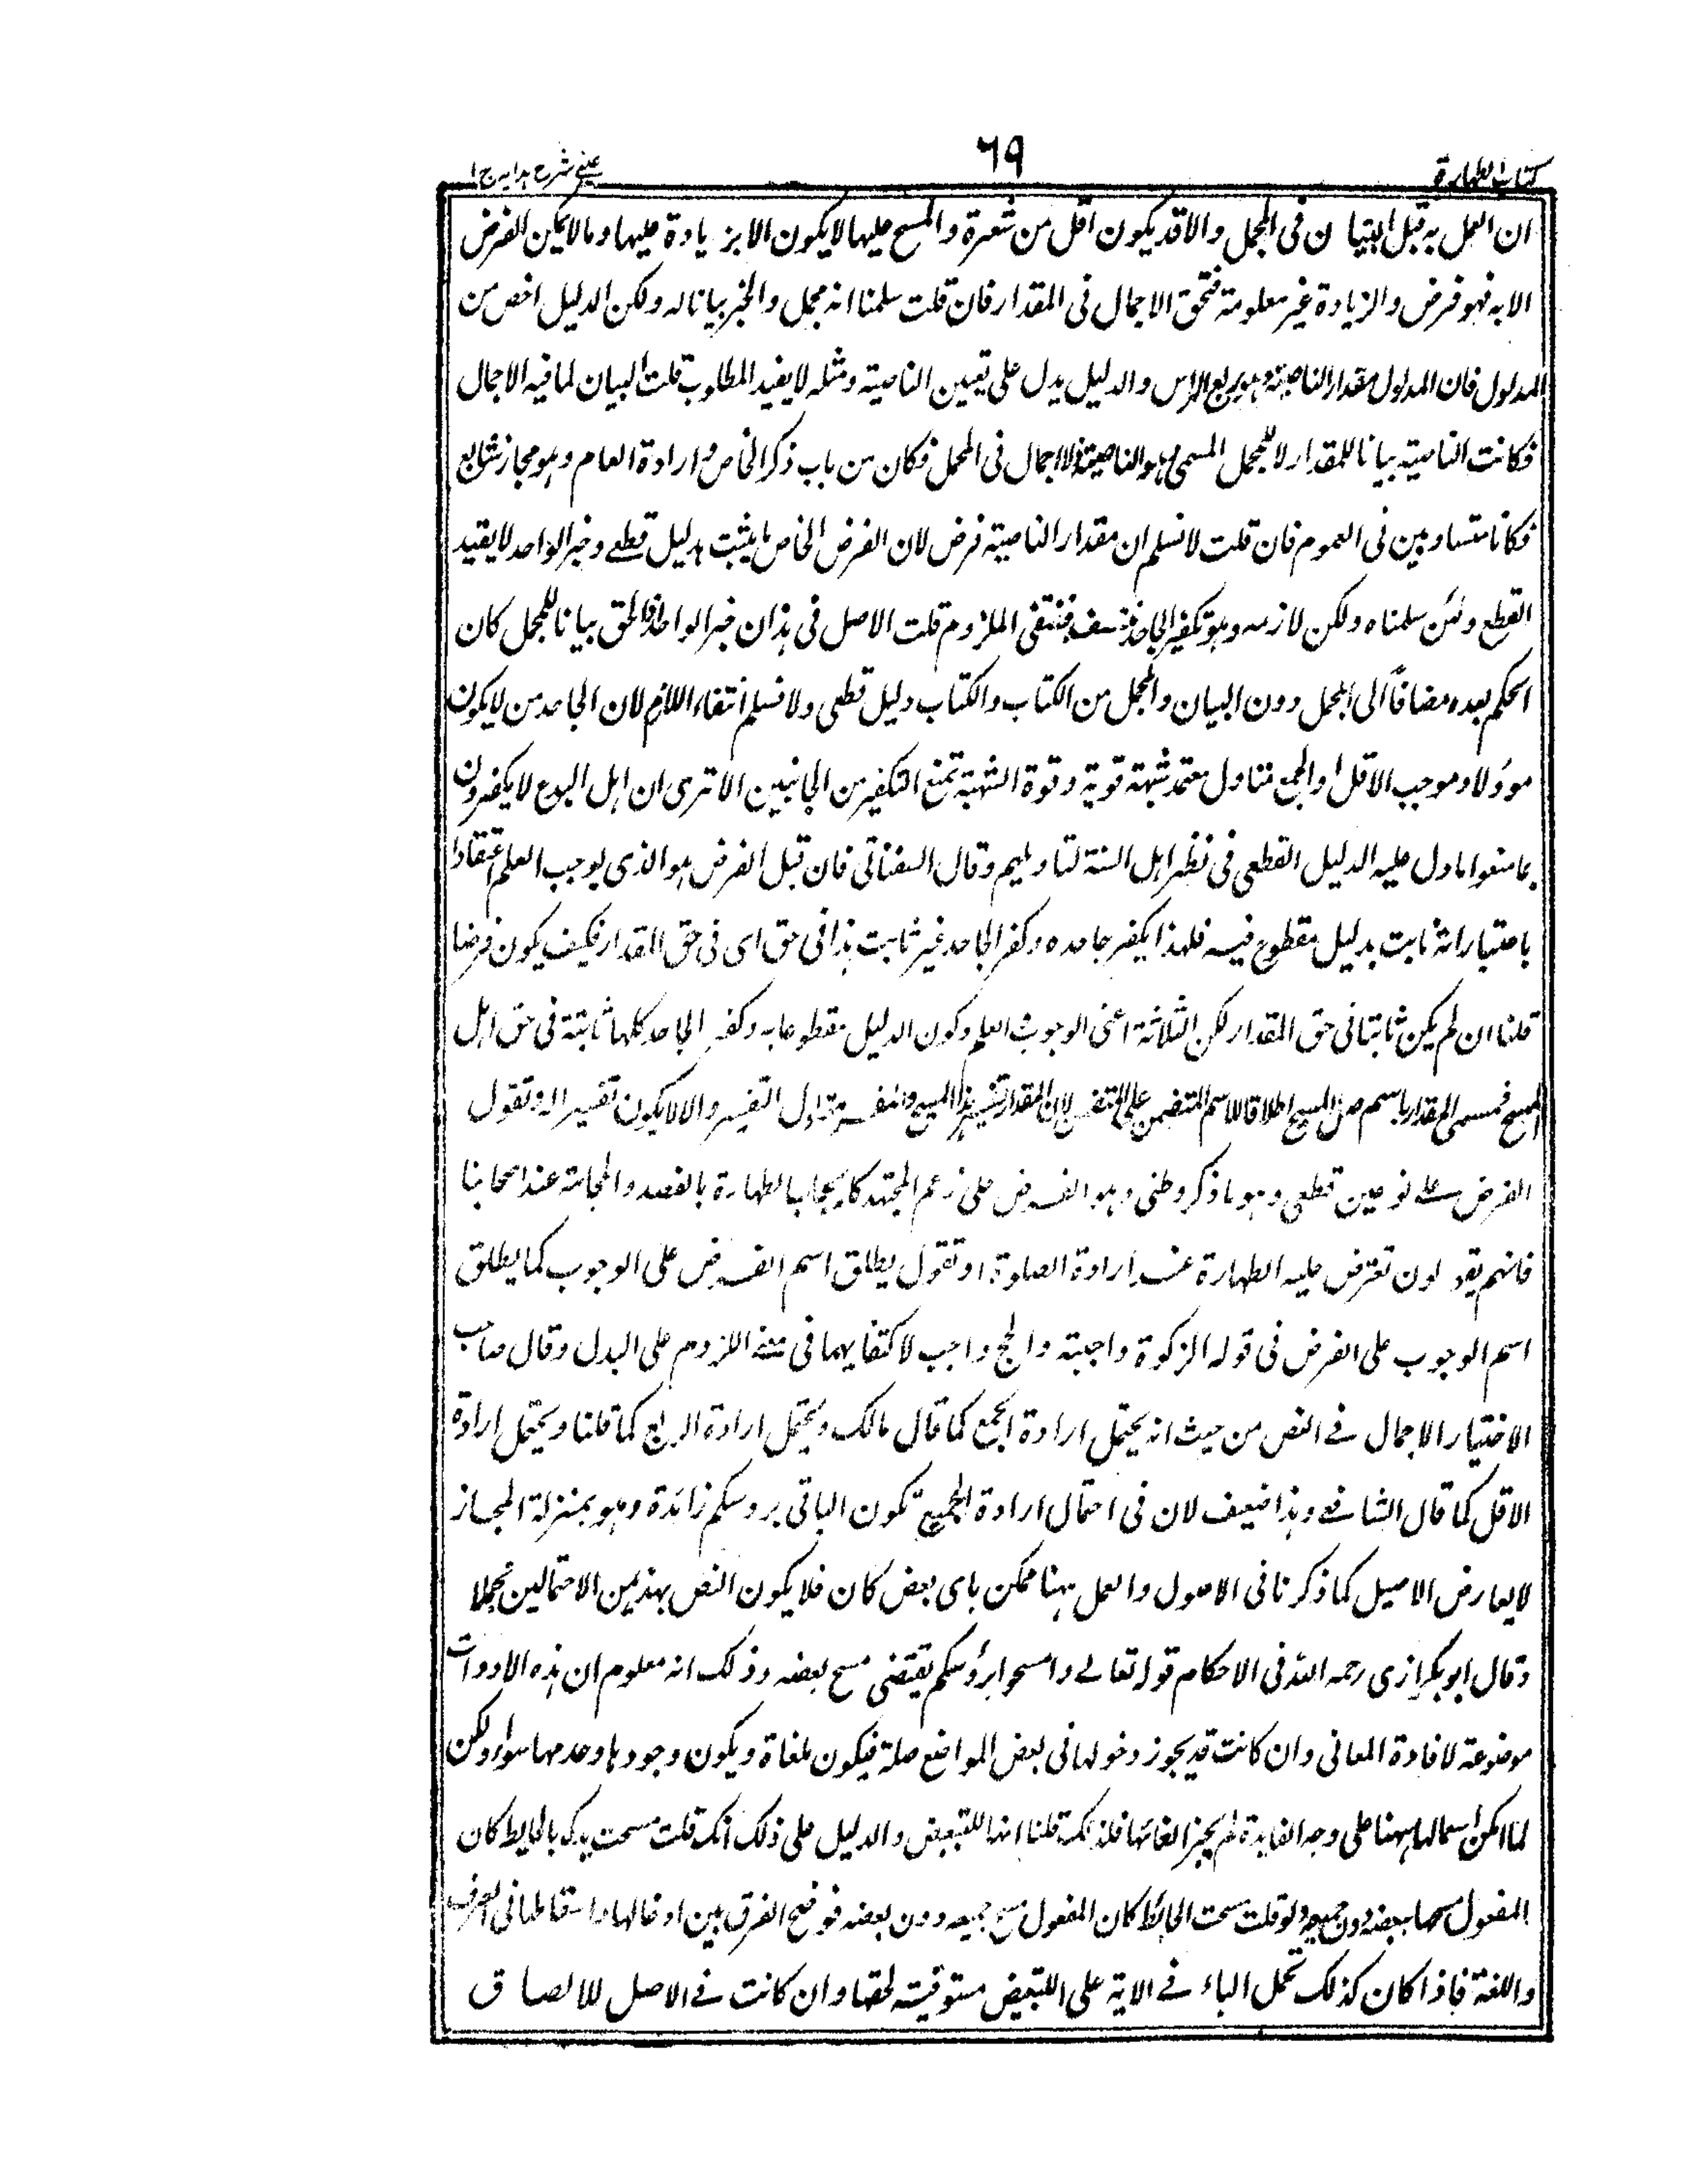 كتاب الطهارة
٦٩
عيني شرح هدايه ج ١
ان العمل به قبل البيان فى المجمل والاقد يكون اقل من شعرة والمسح عليها لا يكون الا بزيادة عليها وما لا يمكن الفرض
الا به فهو فرض والزيادة غير معلومة فتحقق الاجمال فى المقدار فان قلت سلمنا انه مجمل والخبر بيانا له ولكن الدليل اخص من
المدلول فان المدلول مقدار الناصية وهو ربع الراس والدليل يدل على تعيين الناصية ومثله لا يفيد المطلوب قلت البيان لما فيه الاجمال
فكانت الناصية بيانا للمقدار لا للمحل المسمى وهو الناصية اذ لا اجمال فى المحل فكان من باب ذكر الخاص وارادة العام وهو مجاز شايع
فكانا متساويين فى العموم فان قلت لا نسلم ان مقدار الناصية فرض لان الفرض الخاص ما يثبت بدليل قطعے وخبر الواحد لا يفيد
القطع ولئن سلمناه ولكن لازمه وهو تكفير الجاحد منتف فينتفى الملزوم قلت الاصل فى هذا ان خبر الواحد اذا الحق بيانا للمجمل كان
الحكم بعده مضافاً الى المجمل دون البيان والمجمل من الكتاب والكتاب دليل قطعى ولا نسلم انتفاء اللازم لان الجاحد من لا يكون
موولا وموجب الاقل او الجمع متاول معتمد شبهة قوية وقوة الشبهة تمنع التكفير من الجانبين الا ترى ان اهل البدع لا يكفرون
بما منعوا مادل عليه الدليل القطعى فى نظر اهل السنة لتاويلهم وقال السغناقى فان قيل الفرض هو الذى يوجب العلم اعتقادا
باعتبار انه ثابت بدليل مقطوع فيه فلهذا يكفر جاحده وكفر الجاحد غير ثابت هذا فى حق اى فى حق المقدار فكيف يكون فرضا
قلنا ان لم يكن ثابتا فى حق المقدار لكن الثلاثة اعنى الوجوب العلم وكون الدليل مقطوعا به وكفر الجاحد كلها ثابتة فى حق اهل
المسح فسمى المقدار باسم اصل المسح اطلاقا لاسم المتضمن على المتضمن لان المقدار تفسير هذا المسح والمفسر متناول التفسير والا لا يكون تفسيرا له وتقول
الفرض علے نوعين قطعى وهو ما ذكر وظنى وهو الفرض على زعم المجتهد كايجاب الطهارة بالفصد والحجامة عند اصحابنا
فانهم يقولون تعترض عليه الطهارة عند ارادة الصلوة او تقول يطلق اسم الفرض على الوجوب كما يطلق
اسم الوجوب على الفرض فى قوله الزكوة واجبة والحج واجب لاكتفايهما فى معنے اللزوم على البدل وقال صاحب
الاختيار الاجمال فے النص من حيث انه يحتمل ارادة الجمع كما قال مالك ويحتمل ارادة الربع كما قلنا ويحتمل ارادة
الاقل كما قال الشافعے وهذا ضعيف لان فى احتمال ارادة الجميع تكون الباقى بروسكم زائدة وهو بمنزلة المجاز
لا يعارض الاصيل كما ذكرنا فى الاصول والعمل ههنا ممكن باى بعض كان فلا يكون النص بهذين الاحتمالين مجملا
وقال ابو بكر ازى رحمه الله فى الاحكام قوله تعالے وامسحوا برؤسكم يقتضى مسح بعضه وذلك انه معلوم ان هذه الادوات
موضوعة لافادة المعانى وان كانت قد يجوز دخولها فى بعض المواضع صلة فيكون ملغاة ويكون وجودها وعدمها سواء ولكن
لما امكن استعمالها ههنا على وجه الفايدة لم يجز الغائها فلذلك قلنا انها للتبعيض والدليل على ذلك انك قلت مسحت يدى بالحايط كان
المفعول مسحها ببعضه دون جميعه ولو قلت مسحت الحائط كان المفعول مسح جميعه دون بعضه فوضح الفرق بين ادخالها واسقاطها فى العرف
واللغة فاذا كان كذلك تحمل الباء فے الاية على التبعيض مستوفية لحقها وان كانت فے الاصل للالصاق